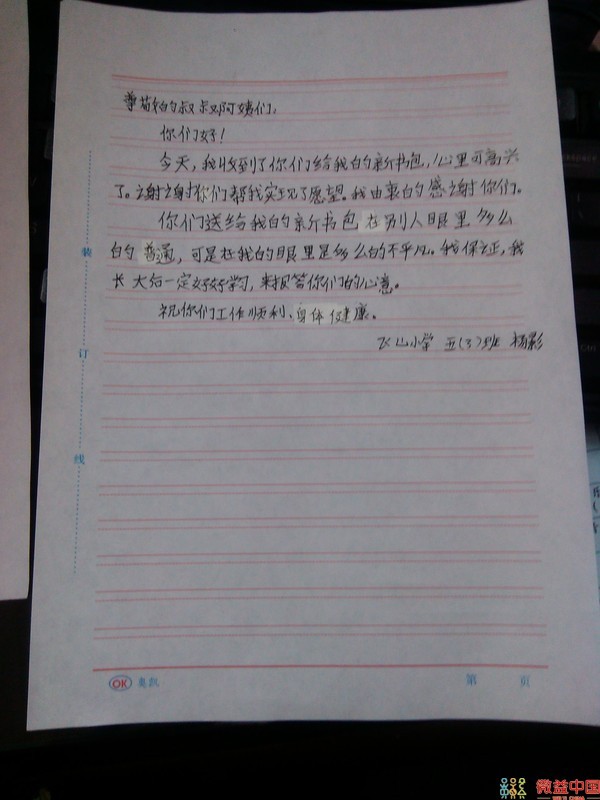 尊敬的叔叔阿姨们:
你们好!
今天,我收到了你们给我的新书包,心里可高兴
了。谢谢你们帮我实现了愿望。我由衷的感谢你们。
你们送给我的新书包在别人眼里多么
的普通,可是在我的眼里是多么的不平凡。我保证,我
长大后一定好好学习,来报答你们的心意。
祝你们工作顺利、身体健康。
飞山小学 五(3)班 杨影
装
订
线
OK 奥凯
第 页
微益中国